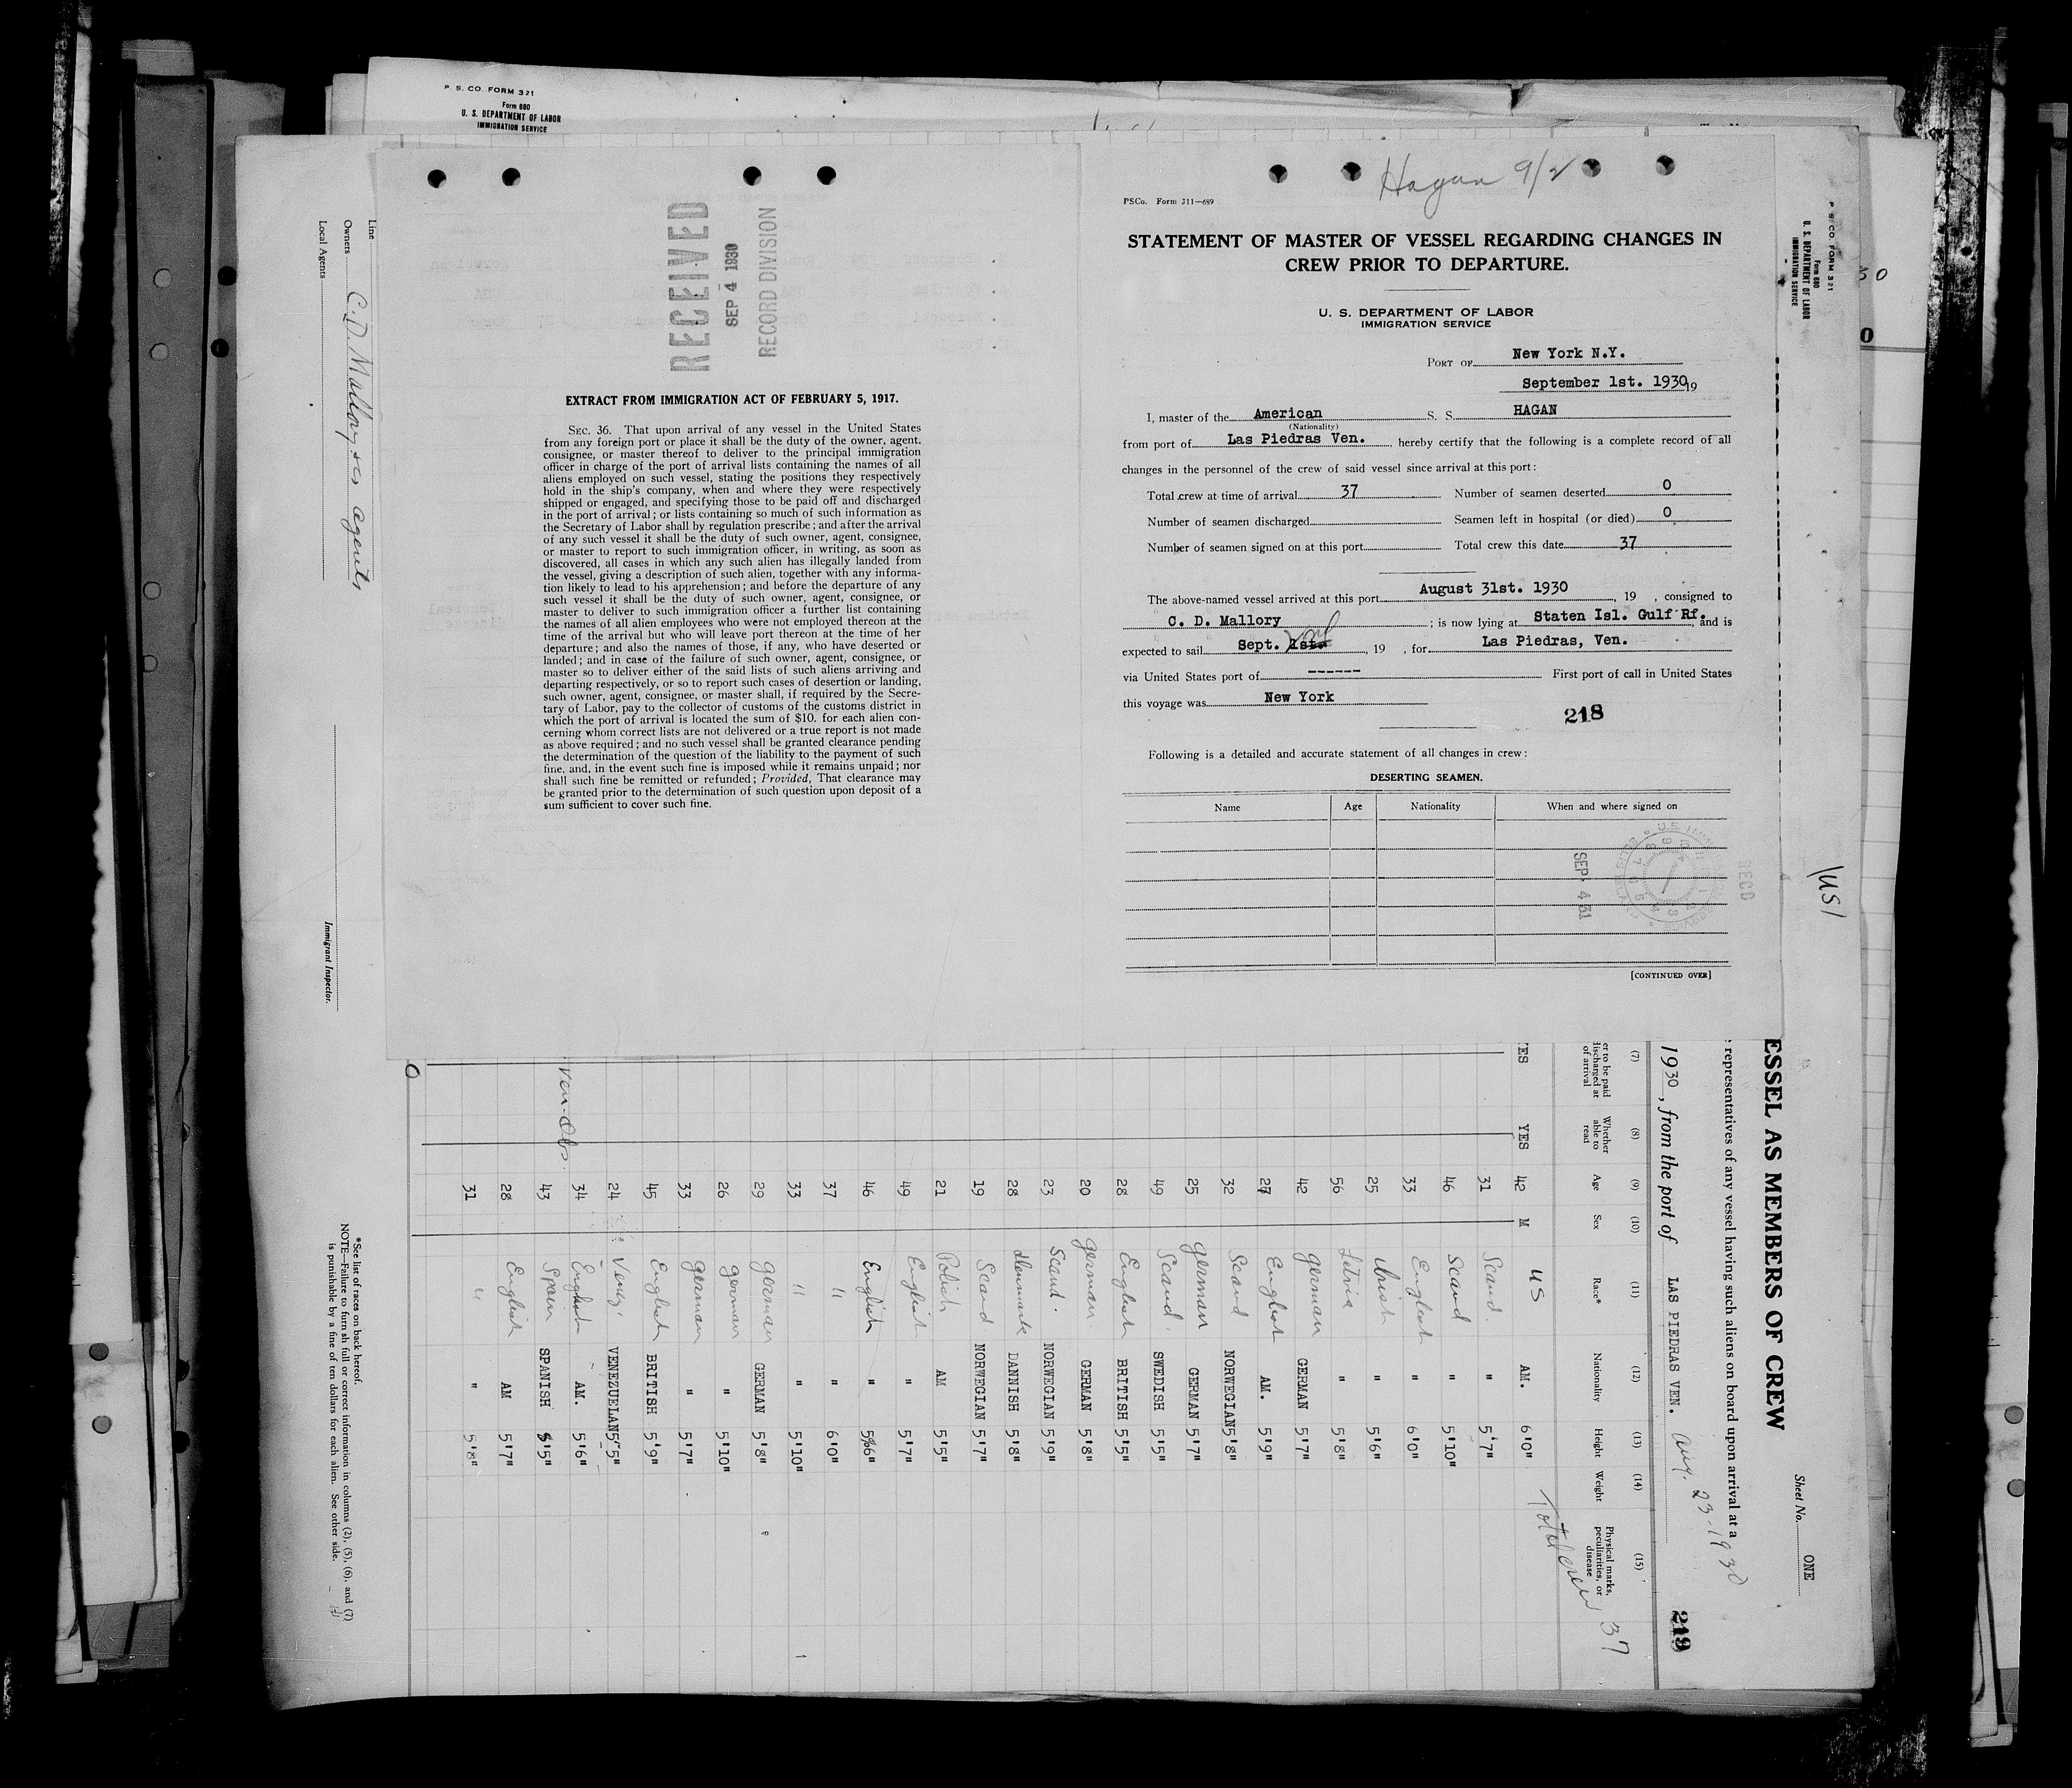 P. S. CO. FORM 321
Form 680
U. S. DEPARTMENT OF LABOR
IMMIGRATION SERVICE
Line
Owners C. D. Mallory
Local Agents
agents
Immigrant Inspector.
*See list of races on back hereof.
NOTE—Failure to furnish full or correct information in columns (2), (5), (6), and (7)
is punishable by a fine of ten dollars for each alien. See other side.
RECEIVED
SEP 4 1930
RECORD DIVISION
EXTRACT FROM IMMIGRATION ACT OF FEBRUARY 5, 1917.
SEC. 36. That upon arrival of any vessel in the United States
from any foreign port or place it shall be the duty of the owner, agent,
consignee, or master thereof to deliver to the principal immigration
officer in charge of the port of arrival lists containing the names of all
aliens employed on such vessel, stating the positions they respectively
hold in the ship's company, when and where they were respectively
shipped or engaged, and specifying those to be paid off and discharged
in the port of arrival; or lists containing so much of such information as
the Secretary of Labor shall by regulation prescribe; and after the arrival
of any such vessel it shall be the duty of such owner, agent, consignee,
or master to report to such immigration officer, in writing, as soon as
discovered, all cases in which any such alien has illegally landed from
the vessel, giving a description of such alien, together with any informa-
tion likely to lead to his apprehension; and before the departure of any
such vessel it shall be the duty of such owner, agent, consignee, or
master to deliver to such immigration officer a further list containing
the names of all alien employees who were not employed thereon at the
time of the arrival but who will leave port thereon at the time of her
departure; and also the names of those, if any, who have deserted or
landed; and in case of the failure of such owner, agent, consignee, or
master so to deliver either of the said lists of such aliens arriving and
departing respectively, or so to report such cases of desertion or landing,
such owner, agent, consignee, or master shall, if required by the Secre-
tary of Labor, pay to the collector of customs of the customs district in
which the port of arrival is located the sum of $10. for each alien con-
cerning whom correct lists are not delivered or a true report is not made
as above required; and no such vessel shall be granted clearance pending
the determination of the question of the liability to the payment of such
fine, and, in the event such fine is imposed while it remains unpaid; nor
shall such fine be remitted or refunded; Provided, That clearance may
be granted prior to the determination of such question upon deposit of a
sum sufficient to cover such fine.
Hagan 9/2
PSCo. Form 311—689
STATEMENT OF MASTER OF VESSEL REGARDING CHANGES IN
CREW PRIOR TO DEPARTURE.
U. S. DEPARTMENT OF LABOR
IMMIGRATION SERVICE
PORT OF New York N.Y.
September 1st. 1930, 19
I, master of the American S. S. HAGAN
(Nationality)
from port of Las Piedras Ven., hereby certify that the following is a complete record of all
changes in the personnel of the crew of said vessel since arrival at this port:
Total crew at time of arrival 37 Number of seamen deserted 0
Number of seamen discharged Seamen left in hospital (or died) 0
Number of seamen signed on at this port Total crew this date 37
The above-named vessel arrived at this port August 31st. 1930, 19 , consigned to
C. D. Mallory ; is now lying at Staten Isl. Gulf Rf., and is
expected to sail Sept. 1st. 2nd, 19 , for Las Piedras, Ven.
via United States port of ------ First port of call in United States
this voyage was New York
218
Following is a detailed and accurate statement of all changes in crew:
DESERTING SEAMEN.
Name Age Nationality When and where signed on
SEP 4 31
REC'D
[CONTINUED OVER]
P. S. CO. FORM 321
Form 680
U. S. DEPARTMENT OF LABOR
IMMIGRATION SERVICE
50
0
1US1
Sheet No. ONE
ESSEL AS MEMBERS OF CREW
representatives of any vessel having such aliens on board upon arrival at a
1930, from the port of LAS PIEDRAS VEN. Aug. 23-1930
219
Total crew 37
(7) (8) (9) (10) (11) (12) (13) (14) (15)
er to be paid discharged at of arrival
Whether able to read
Age
Sex
Race*
Nationality
Height
Weight
Physical marks, peculiarities, or disease
YES YES 42 M US AM. 6'0"
31 Scand. " 5'7"
46 Scand " 5'10"
33 English " 6'0"
25 Irish " 5'6"
56 " 5'8"
42 German GERMAN 5'7"
27 English AM. 5'9"
32 Scand NORWEGIAN 5'8"
25 German GERMAN 5'7"
49 Scand. SWEDISH 5'5"
28 English BRITISH 5'5"
20 German GERMAN 5'8"
23 Scand. NORWEGIAN 5'9"
28 Denmark DANNISH 5'8"
19 Scand NORWEGIAN 5'7"
21 Polish AM 5'5"
49 English " 5'7"
46 English " 5'6"
37 " " 6'0"
33 " " 5'10"
29 German GERMAN 5'8"
26 German " 5'10"
33 German " 5'7"
45 English BRITISH 5'9"
24 Venez. VENEZUELAN 5'5"
34 English AM. 5'6"
43 Spain SPANISH 5'5"
28 English AM 5'7"
31 " " 5'8"